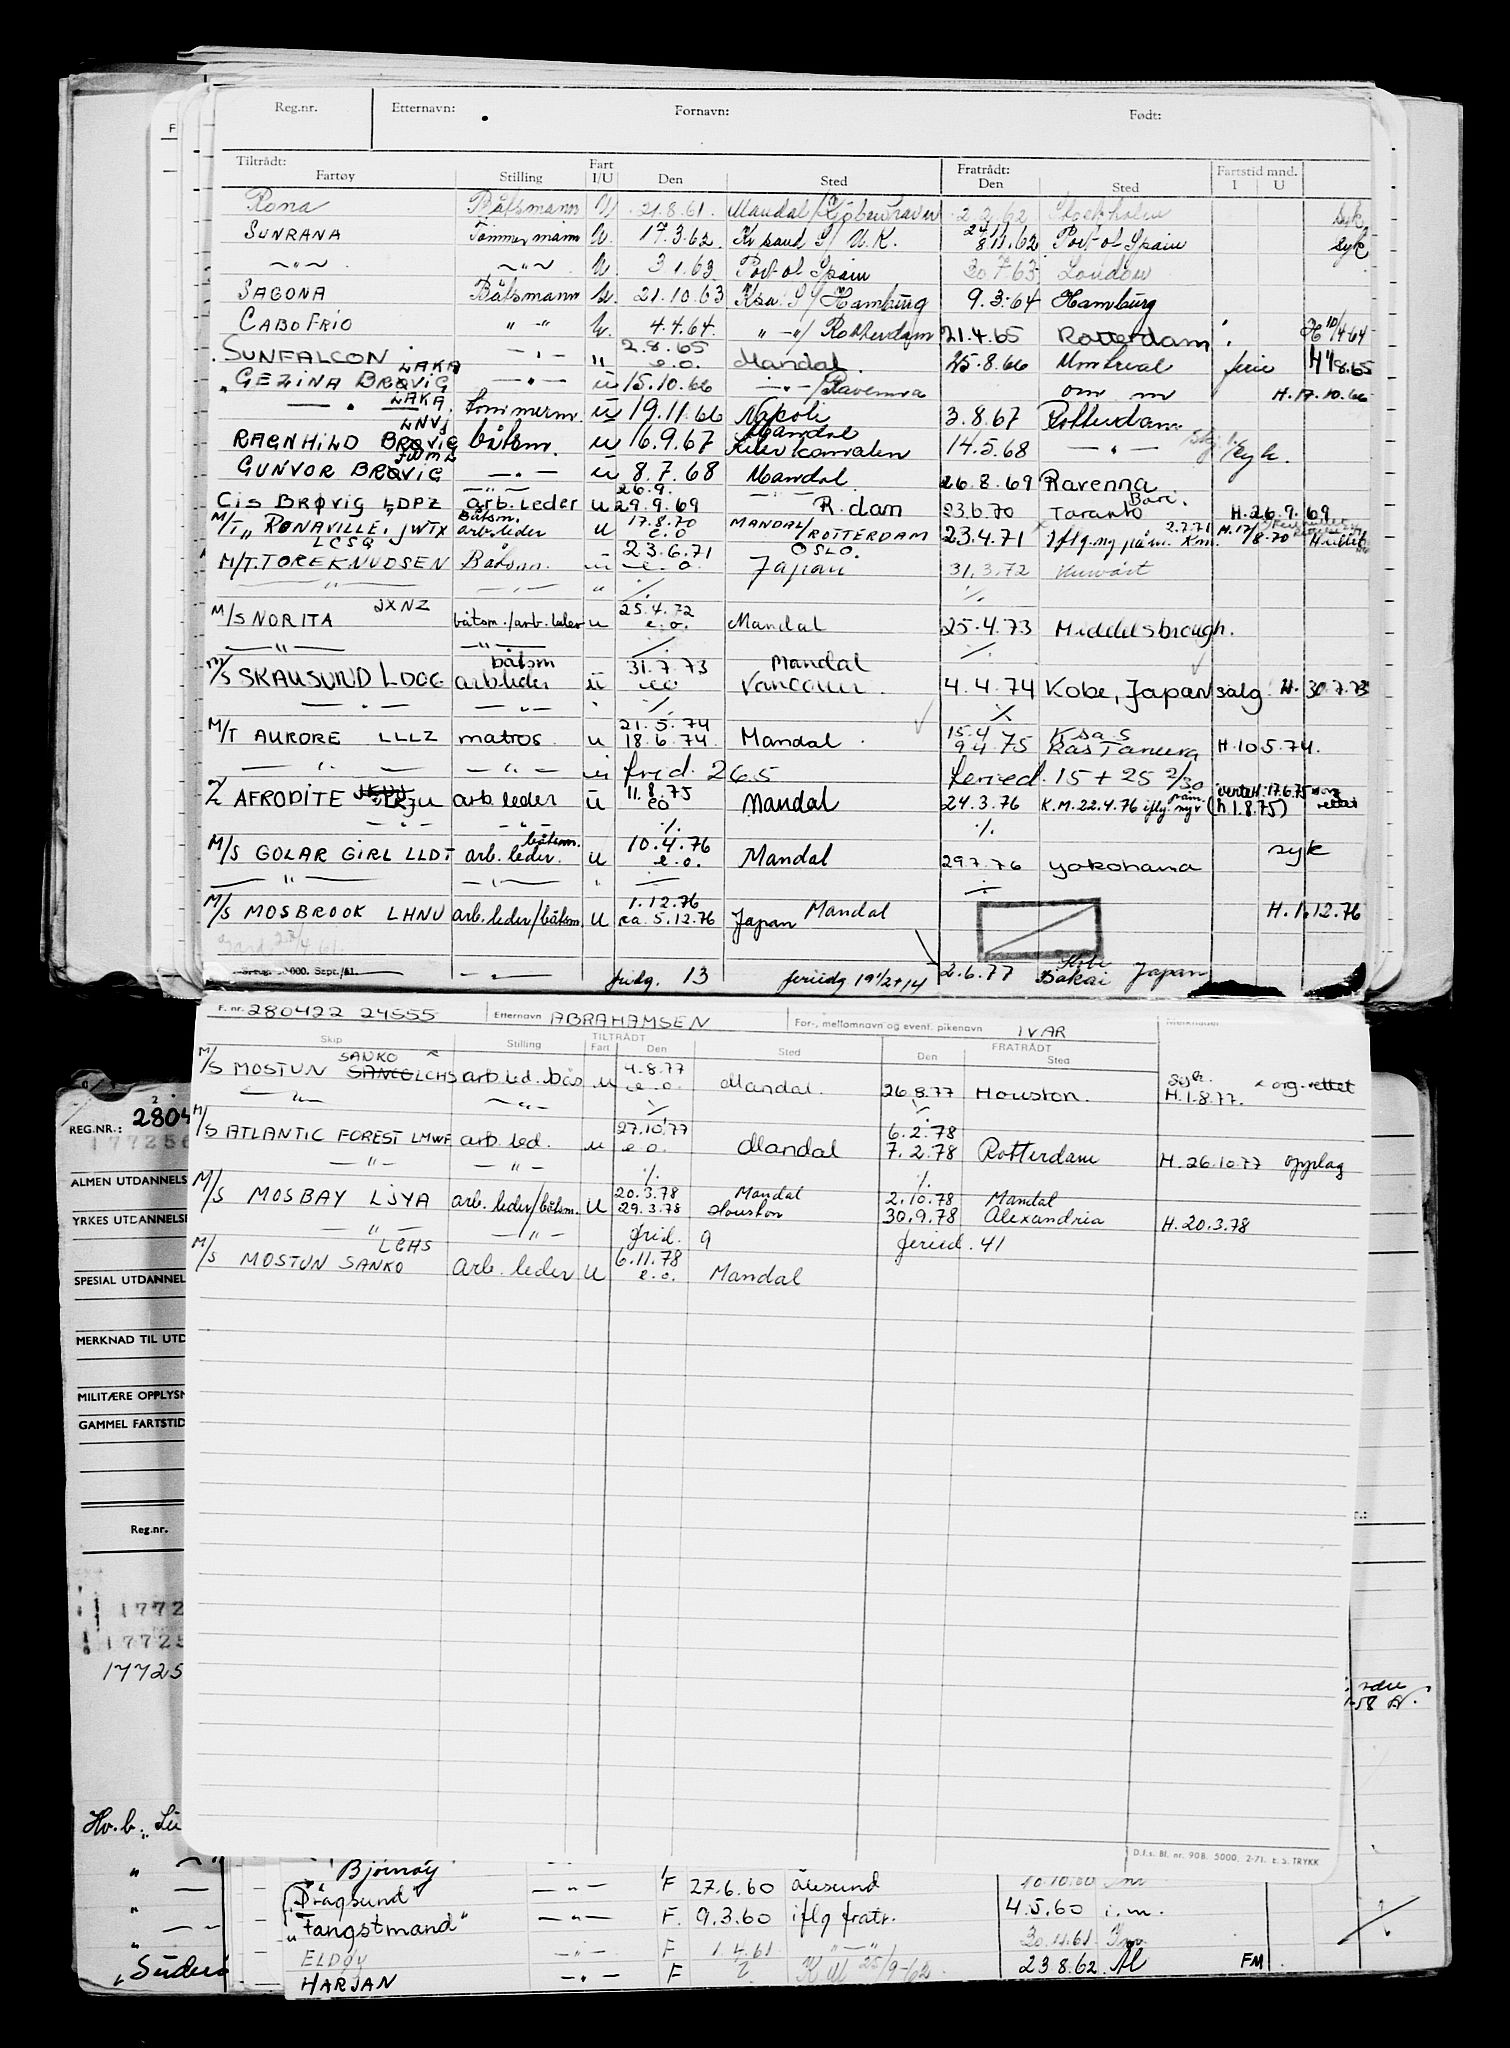 Reg.nr. Etternavn: Fornavn: Født:
Tiltrådt: Fart Fratrådt: Fartstid mnd.
Fartøy Stilling I/U Den Sted Den Sted I U
Rona Båtsmann U 21.8.61. Mandal/Köbenhavn 2.2.62 Stockholm syk
SUNRANA Tömmermann U. 17.3.62. Kr.sand S/ U.K. 8 11.62 Port of Spain syk
—"— —"— U 3 1.63 Port of Spain 30 7.63 London
SAGONA Båtsmann U. 21.10.63 Ksa. S/Hamburg 9.3.64 Hamburg
CABO FRIO " -" U. 4.4.64. " -"/ Rotterdam 21.4.65 Rotterdam H 10/4 64
SUNFALCON —"— u 2.8.65 e.o. Mandal. 25.8.66 Montreal ferie
LAKA
GEZINA BRØVIG —"— u 15.10.66 —"—/Ravenna om m H.17.10.66
—"— LAKA tømmerm. u 19.11.66 Napoli 3.8.67 Rotterdam
LNVJ Mandal
RAGNHILD BRØVIG båtsm. u 16.9.67 Kieler kanalen 14.5.68 —"— syk.
GUNVOR BRØVIG —"— u 8.7.68 Mandal 26.8.69 Ravenna
26.9. —"— Bari.
CIS BRØVIG LDPZ arb.leder u 29.9.69 R.dam 23.6.70 Taranto H.26.9.69
Båtsm. 17.8.70 2.7.71
M/T " RONAVILLE. JWTX arb.leder u e.o MANDAL/ROTTERDAM 23.4.71 Iflg. ny påm. Km. H.17/8.70
LCSQ 23.6.71 OSLO.
M/T. TORE KNUDSEN Båtsm. u e.o. Japan 31.3.72 Kuwait
—"— —"— " ./. ./.
JXNZ 25.4.72
M/S NORITA båtsm./arb.leder u e.o. Mandal 25.4.73 Middelsbrough.
—"— —"— ./. ./.
båtsm 31.7.73 Mandal
M/S SKAUSUND LDCG arb.leder u e.o Vancouver. 4.4.74 Kobe, Japan salg H. 30.7.73
—"— —"— " ./. ./.
21.5.74 15.4 75 Ksa S
M/T AURORE LLLZ matros u 18.6.74. Mandal. 9 4.75 Ras Tanura H.10 5.74.
—"— —"— u frid. 26.5 feried. 15 + 25 2/30
11.8.75
AFRODITE arb leder u eo Mandal 24.3.76 K.M. 22.4.76 iflg. ny påm. (h 1.8.75)
—"— —"— ./. ./.
båtsm. 10.4.76 syk
M/S GOLAR GIRL LLDT arb. leder. u e.o. Mandal 29.7.76 Yokohama
—"— —"— " ./. ./.
1.12.76
M/S MOSBROOK LHNU arb.leder/båtsm. u ca. 5.12.76 Japan Mandal H. 1.12.76
000. Sept./61. —"— fridg. 13 feriedg 19 1/2+14 2.6.77 Sakai Japan
F. nr. 280422 24555 Etternavn ABRAHAMSEN For-, mellomnavn og event. pikenavn IVAR Merknader
TILTRÅDT FRATRÅDT
Skip Stilling Fart Den Sted Den Sted
SANKO 4.8.77 syk. org. rettet
M/S MOSTUN SANCO LCHS arb led. bås u e.o. Mandal. 26.8.77 Houston. H.1.8.77.
—"— —"— ./. ./.
27.10.77 6.2.78
M/S ATLANTIC FOREST LMWF arb. led. u e o. Mandal 7.2.78 Rotterdam H.26.10.77 opplag
—"— —"— ./. ./.
20.3.78 Mandal 2.10.78 Mandal
M/S MOSBAY LJYA arb. leder/båtsm. U 29.3.78 Houston 30.9.78 Alexandria H.20.3.78
—"— —"— frid. 9 feried. 41
LCHS 6.11.78
M/S MOSTUN SANKO arb. leder U e.o. Mandal
D.f.s. Bl. nr. 90B. 5000. 2-71. E. S. TRYKK
REG.NR.: 2804
ALMEN UTDANNELS
YRKES UTDANNELSE
SPESIAL UTDANNEL
MERKNAD TIL UTD
MILITÆRE OPPLYSN
GAMMEL FARTSTID
Reg.nr.
1772
17725
17725
Hv.b.
"Bjørnøy
"Dragsund" —"— F 27.6.60 Ålesund
"Fangstmand" —"— F. 9.3.60 iflg fratr. 4.5.60 i.m.
ELDØY —"— F 1.4.61 —"— 30.11.61
HARJAN —"— F ? K M 25/9-62. 23 8.62. Ål FM